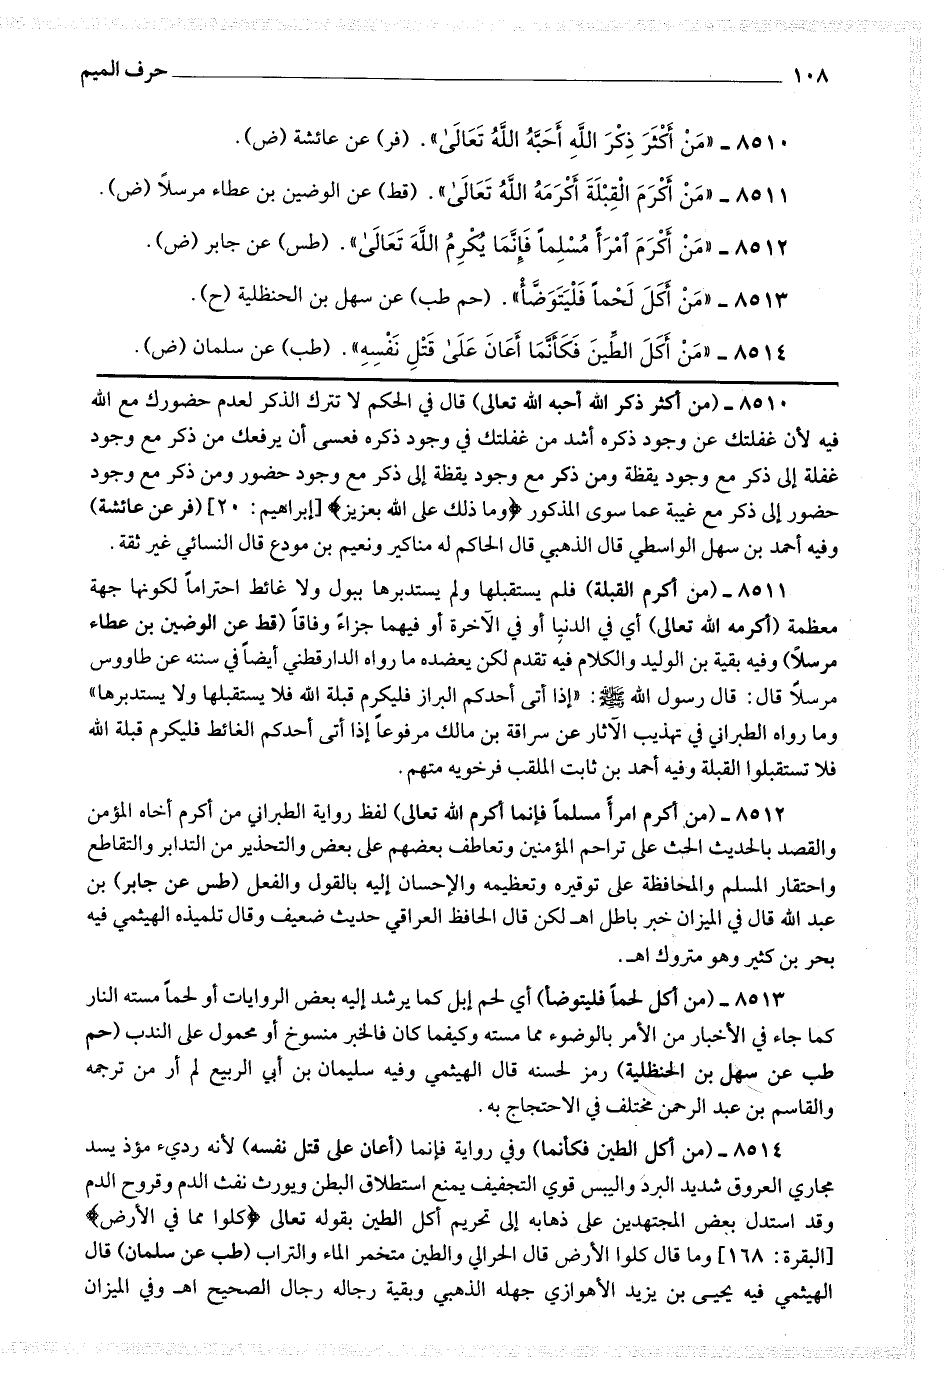 ١٠٨ ــــــــــــــــــــــــــــــــــــــــــ حرف الميم
٨٥١٠ ـ «مَنْ أَكْثَرَ ذِكْرَ اللَّهِ أَحَبَّهُ اللَّهُ تَعَالَىٰ». (فر) عن عائشة (ض).
٨٥١١ ـ «مَنْ أَكْرَمَ الْقِبْلَةَ أَكْرَمَهُ اللَّهُ تَعَالَىٰ». (قط) عن الوضين بن عطاء مرسلاً (ض).
٨٥١٢ ـ «مَنْ أَكْرَمَ ٱمْرَأً مُسْلِماً فَإِنَّمَا يُكْرِمُ اللَّهَ تَعَالَىٰ». (طس) عن جابر (ض).
٨٥١٣ ـ «مَنْ أَكَلَ لَحْماً فَلْيَتَوَضَّأْ». (حم طب) عن سهل بن الحنظلية (ح).
٨٥١٤ ـ «مَنْ أَكَلَ الطِّينَ فَكَأَنَّمَا أَعَانَ عَلَىٰ قَتْلِ نَفْسِهِ». (طب) عن سلمان (ض).
٨٥١٠ ـ (من أكثر ذكر الله أحبه الله تعالى) قال في الحكم لا تترك الذكر لعدم حضورك مع الله
فيه لأن غفلتك عن وجود ذكره أشد من غفلتك في وجود ذكره فعسى أن يرفعك من ذكر مع وجود
غفلة إلى ذكر مع وجود يقظة ومن ذكر مع وجود يقظة إلى ذكر مع وجود حضور ومن ذكر مع وجود
حضور إلى ذكر مع غيبة عما سوى المذكور ﴿وما ذلك على الله بعزيز﴾ [إبراهيم: ٢٠] (فر عن عائشة)
وفيه أحمد بن سهل الواسطي قال الذهبي قال الحاكم له مناكير ونعيم بن مودع قال النسائي غير ثقة.
٨٥١١ ـ (من أكرم القبلة) فلم يستقبلها ولم يستدبرها ببول ولا غائط احتراماً لكونها جهة
معظمة (أكرمه الله تعالى) أي في الدنيا أو في الآخرة أو فيهما جزاءً وفاقاً (قط عن الوضين بن عطاء
مرسلاً) وفيه بقية بن الوليد والكلام فيه تقدم لكن يعضده ما رواه الدارقطني أيضاً في سننه عن طاووس
مرسلاً قال: قال رسول الله ﷺ: «إذا أتى أحدكم البراز فليكرم قبلة الله فلا يستقبلها ولا يستدبرها»
وما رواه الطبراني في تهذيب الآثار عن سراقة بن مالك مرفوعاً إذا أتى أحدكم الغائط فليكرم قبلة الله
فلا تستقبلوا القبلة وفيه أحمد بن ثابت الملقب فرخويه متهم.
٨٥١٢ ـ (من أكرم امرأً مسلماً فإنما أكرم الله تعالى) لفظ رواية الطبراني من أكرم أخاه المؤمن
والقصد بالحديث الحث على تراحم المؤمنين وتعاطف بعضهم على بعض والتحذير من التدابر والتقاطع
واحتقار المسلم والمحافظة على توقيره وتعظيمه والإحسان إليه بالقول والفعل (طس عن جابر) بن
عبد الله قال في الميزان خبر باطل اهـ لكن قال الحافظ العراقي حديث ضعيف وقال تلميذه الهيثمي فيه
بحر بن كثير وهو متروك اهـ.
٨٥١٣ ـ (من أكل لحماً فليتوضأ) أي لحم إبل كما يرشد إليه بعض الروايات أو لحماً مسته النار
كما جاء في الأخبار من الأمر بالوضوء مما مسته وكيفما كان فالخبر منسوخ أو محمول على الندب (حم
طب عن سهل بن الحنظلية) رمز لحسنه قال الهيثمي وفيه سليمان بن أبي الربيع لم أر من ترجمه
والقاسم بن عبد الرحمن مختلف في الاحتجاج به.
٨٥١٤ ـ (من أكل الطين فكأنما) وفي رواية فإنما (أعان على قتل نفسه) لأنه رديء مؤذ يسد
مجاري العروق شديد البرد واليبس قوي التجفيف يمنع استطلاق البطن ويورث نفث الدم وقروح الدم
وقد استدل بعض المجتهدين على ذهابه إلى تحريم أكل الطين بقوله تعالى ﴿كلوا مما في الأرض﴾
[البقرة: ١٦٨] وما قال كلوا الأرض قال الحرالي والطين متخمر الماء والتراب (طب عن سلمان) قال
الهيثمي فيه يحيـى بن يزيد الأهوازي جهله الذهبي وبقية رجاله رجال الصحيح اهـ وفي الميزان